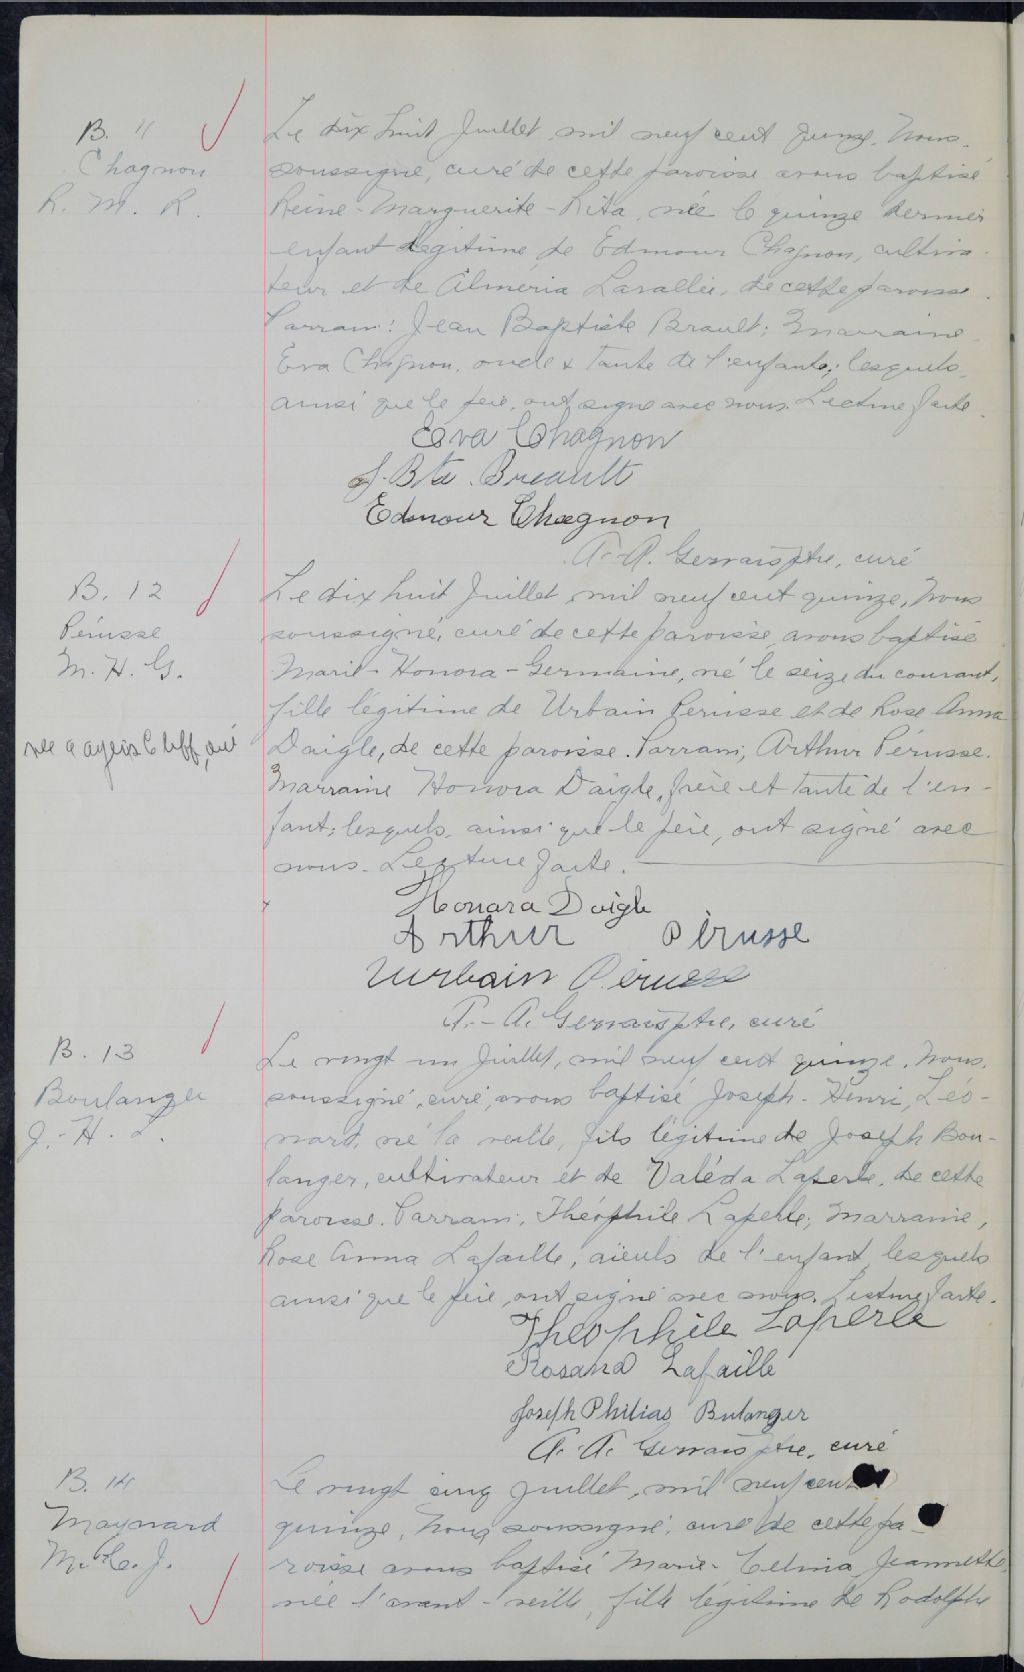 B. 11
Chagnon
R. M. R.
Le dix huit Juillet mil neuf cent quinze, Nous
soussigné, curé de cette paroisse avons baptisé
Reine-Marguerite-Rita, née le quinze dernier
enfant légitime de Edmour Chagnon, cultiva-
teur et de Alméria Lavallée, de cette paroisse.
Parrain: Jean Baptiste Brault; Marraine
Eva Chagnon, oncle & tante de l'enfant; lesquels,
ainsi que le père, ont signé avec nous. Lecture faite.
Eva Chagnon
J. Bte. Breault
Edmour Chagnon
A.-A. Gervais ptre, curé
B. 12
Pérusse
M. H. G.
née à ayers Cliff, qué
Le dix huit Juillet mil neuf cent quinze, Nous
soussigné, curé de cette paroisse avons baptisé
Marie-Honora-Germaine, né le seize du courant,
fille légitime de Urbain Perusse et de Rose Anna
Daigle, de cette paroisse. Parrain, Arthur Pérusse.
Marraine Honora Daigle, frère et tante de l'en-
fant; lesquels, ainsi que le père, ont signé avec
nous. Lecture faite.
Honara Daigle
Arthur Pérusse
Urbain Pérusse
A.-A. Gervais ptre, curé
B. 13
Boulanger
J.-H. L.
Le vingt un Juillet, mil neuf cent quinze, Nous,
soussigné, curé, avons baptisé Joseph-Henri, Léo-
nard, né la veille, fils légitime de Joseph Bou-
langer, cultivateur et de Valéda Laperle, de cette
paroisse. Parrain, Théophile Laperle; Marraine,
Rose Anna Lafaille, aïeuls de l'enfant, lesquels
ainsi que le père, ont signé avec nous. Lecture faite.
Theophile Laperle
Rosana Lafaille
Joseph Philias Bulanger
A.-A. Gervais ptre, curé
B. 14
Maynard
M. C. J.
Le vingt cinq Juillet, mil neuf cent
quinze, Nous soussigné, curé de cette pa-
roisse avons baptisé Marie-Celina Jeannette,
née l'avant-veille, fille légitime de Rodolphe